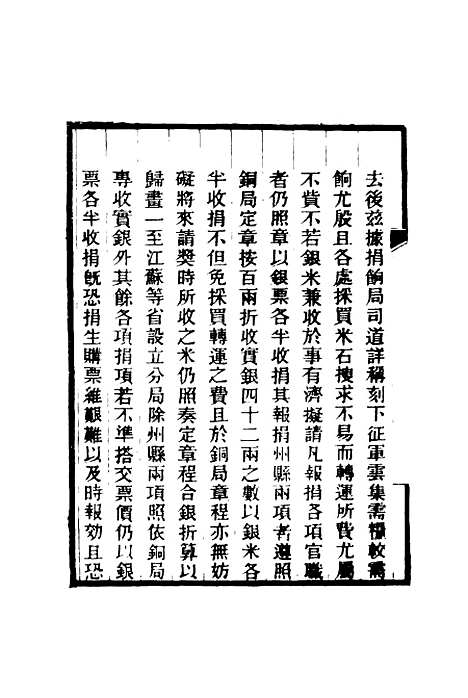 去後茲據捐餉局司道詳稱刻下征軍雲集需糧較需
餉尤殷且各處採買米石搜求不易而轉運所費尤屬
不貲不若銀米兼收於事有濟擬請凡報捐各項官職
者仍照章以銀票各半收捐其報捐州縣兩項者遵照
銅局定章按百兩折收實銀四十二兩之數以銀米各
半收捐不但免採買轉運之費且於銅局章程亦無妨
礙將來請奬時所收之米仍照奏定章程合銀折算以
歸畫一至江蘇等省設立分局除州縣兩項照依銅局
專收實銀外其餘各項捐項若不準搭交票價仍以銀
票各半收捐旣恐捐生購票維艱難以及時報効且恐